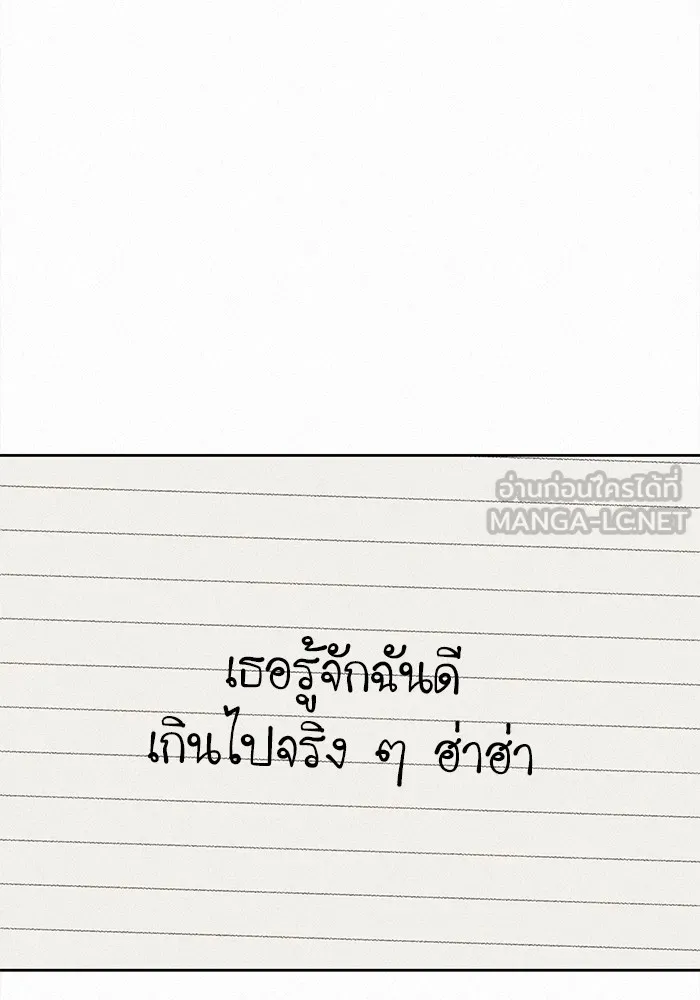 อ่านก่อนใครได้ที่
MANGA-LC.NET
เธอรู้จักฉันดี
เกินไปจริง ๆ ฮ่าฮ่า